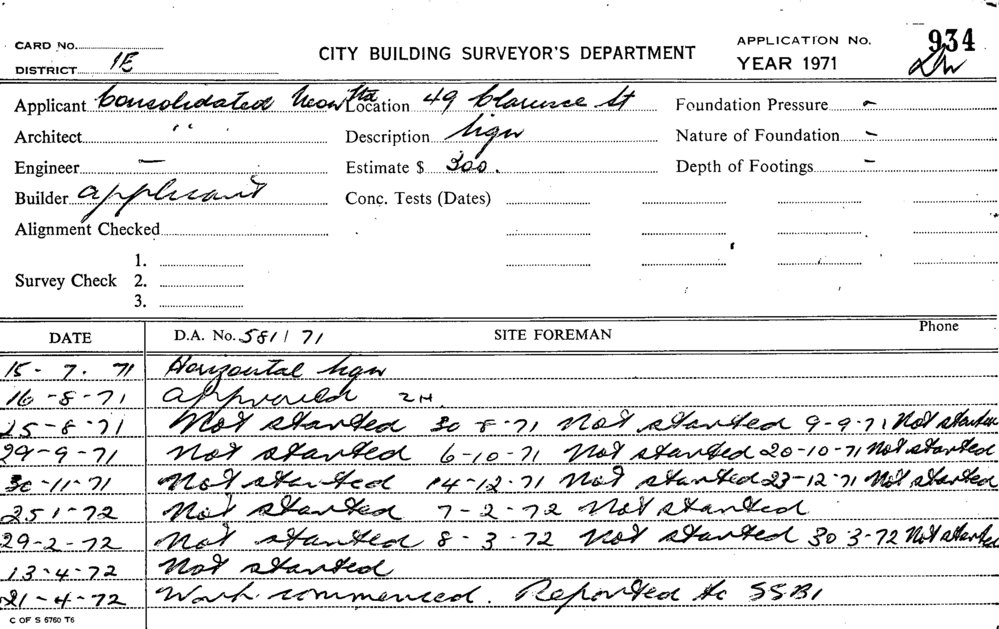 CARD No.
DISTRICT 1E
CITY BUILDING SURVEYOR'S DEPARTMENT
APPLICATION No. 934
YEAR 1971
Applicant Consolidated Neon Location 49 Clarence St Foundation Pressure -
Architect " Description Sign Nature of Foundation -
Engineer - Estimate $ 300. Depth of Footings -
Builder applicant Conc. Tests (Dates)
Alignment Checked
1.
Survey Check 2.
3.
DATE D.A. No. 581/71 SITE FOREMAN Phone
15-7.71 Horizontal sign
16-8-71 Approved
25-8-71 Not started 30-8-71 Not started 9-9-71 Not started
29-9-71 Not started 6-10-71 Not started 20-10-71 Not started
30-11-71 Not started 14-12-71 Not started 23-12-71 Not started
25 1-72 Not started 7-2-72 Not started
29-2-72 Not started 8-3-72 Not started 30 3-72 Not started
13-4-72 Not started
21-4-72 Work commenced. Reported to SSBI
C OF S 6760 T6